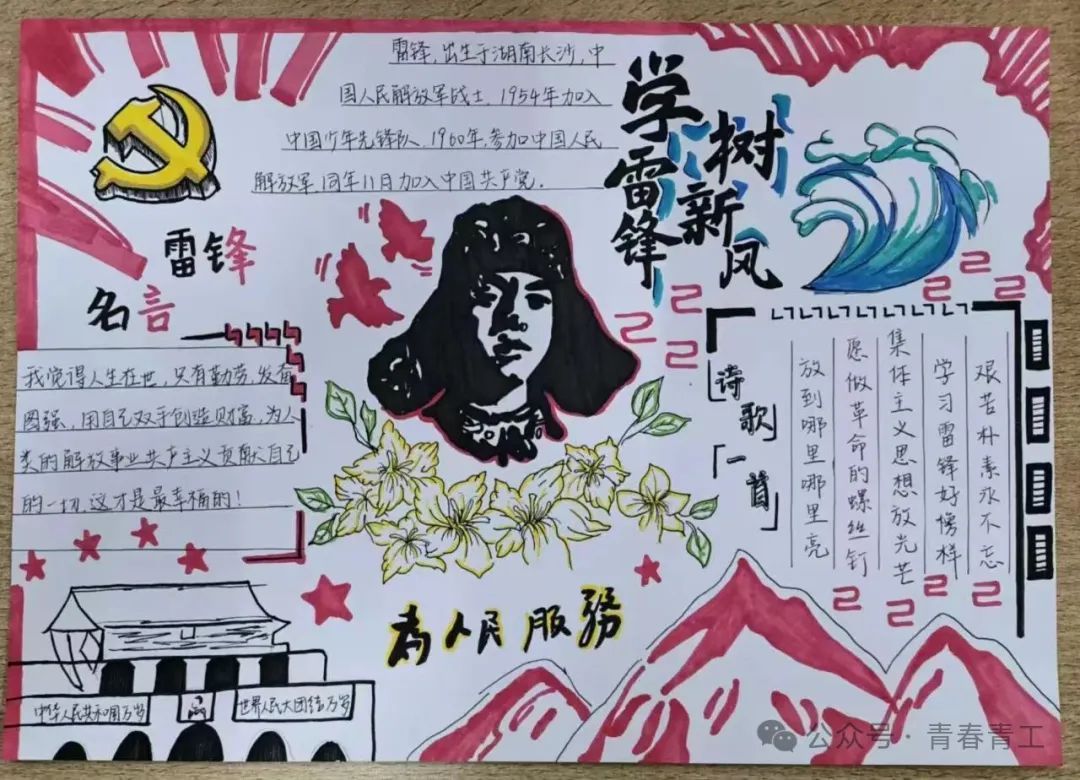 雷锋,出生于湖南长沙,中
国人民解放军战士,1954年加入
中国少年先锋队,1960年,参加中国人民
解放军,同年11月加入中国共产党.
学雷锋
树新风
雷锋
名言
我觉得人生在世,只有勤劳,发奋
图强,用自己双手创造财富,为人
类的解放事业共产主义贡献自己
的一切,这才是最幸福的!
诗歌一首
艰苦朴素永不忘
学习雷锋好榜样
集体主义思想放光芒
愿做革命的螺丝钉
放到哪里哪里亮
为人民服務
中华人民共和国万岁
世界人民大团结万岁
公众号·青春青工